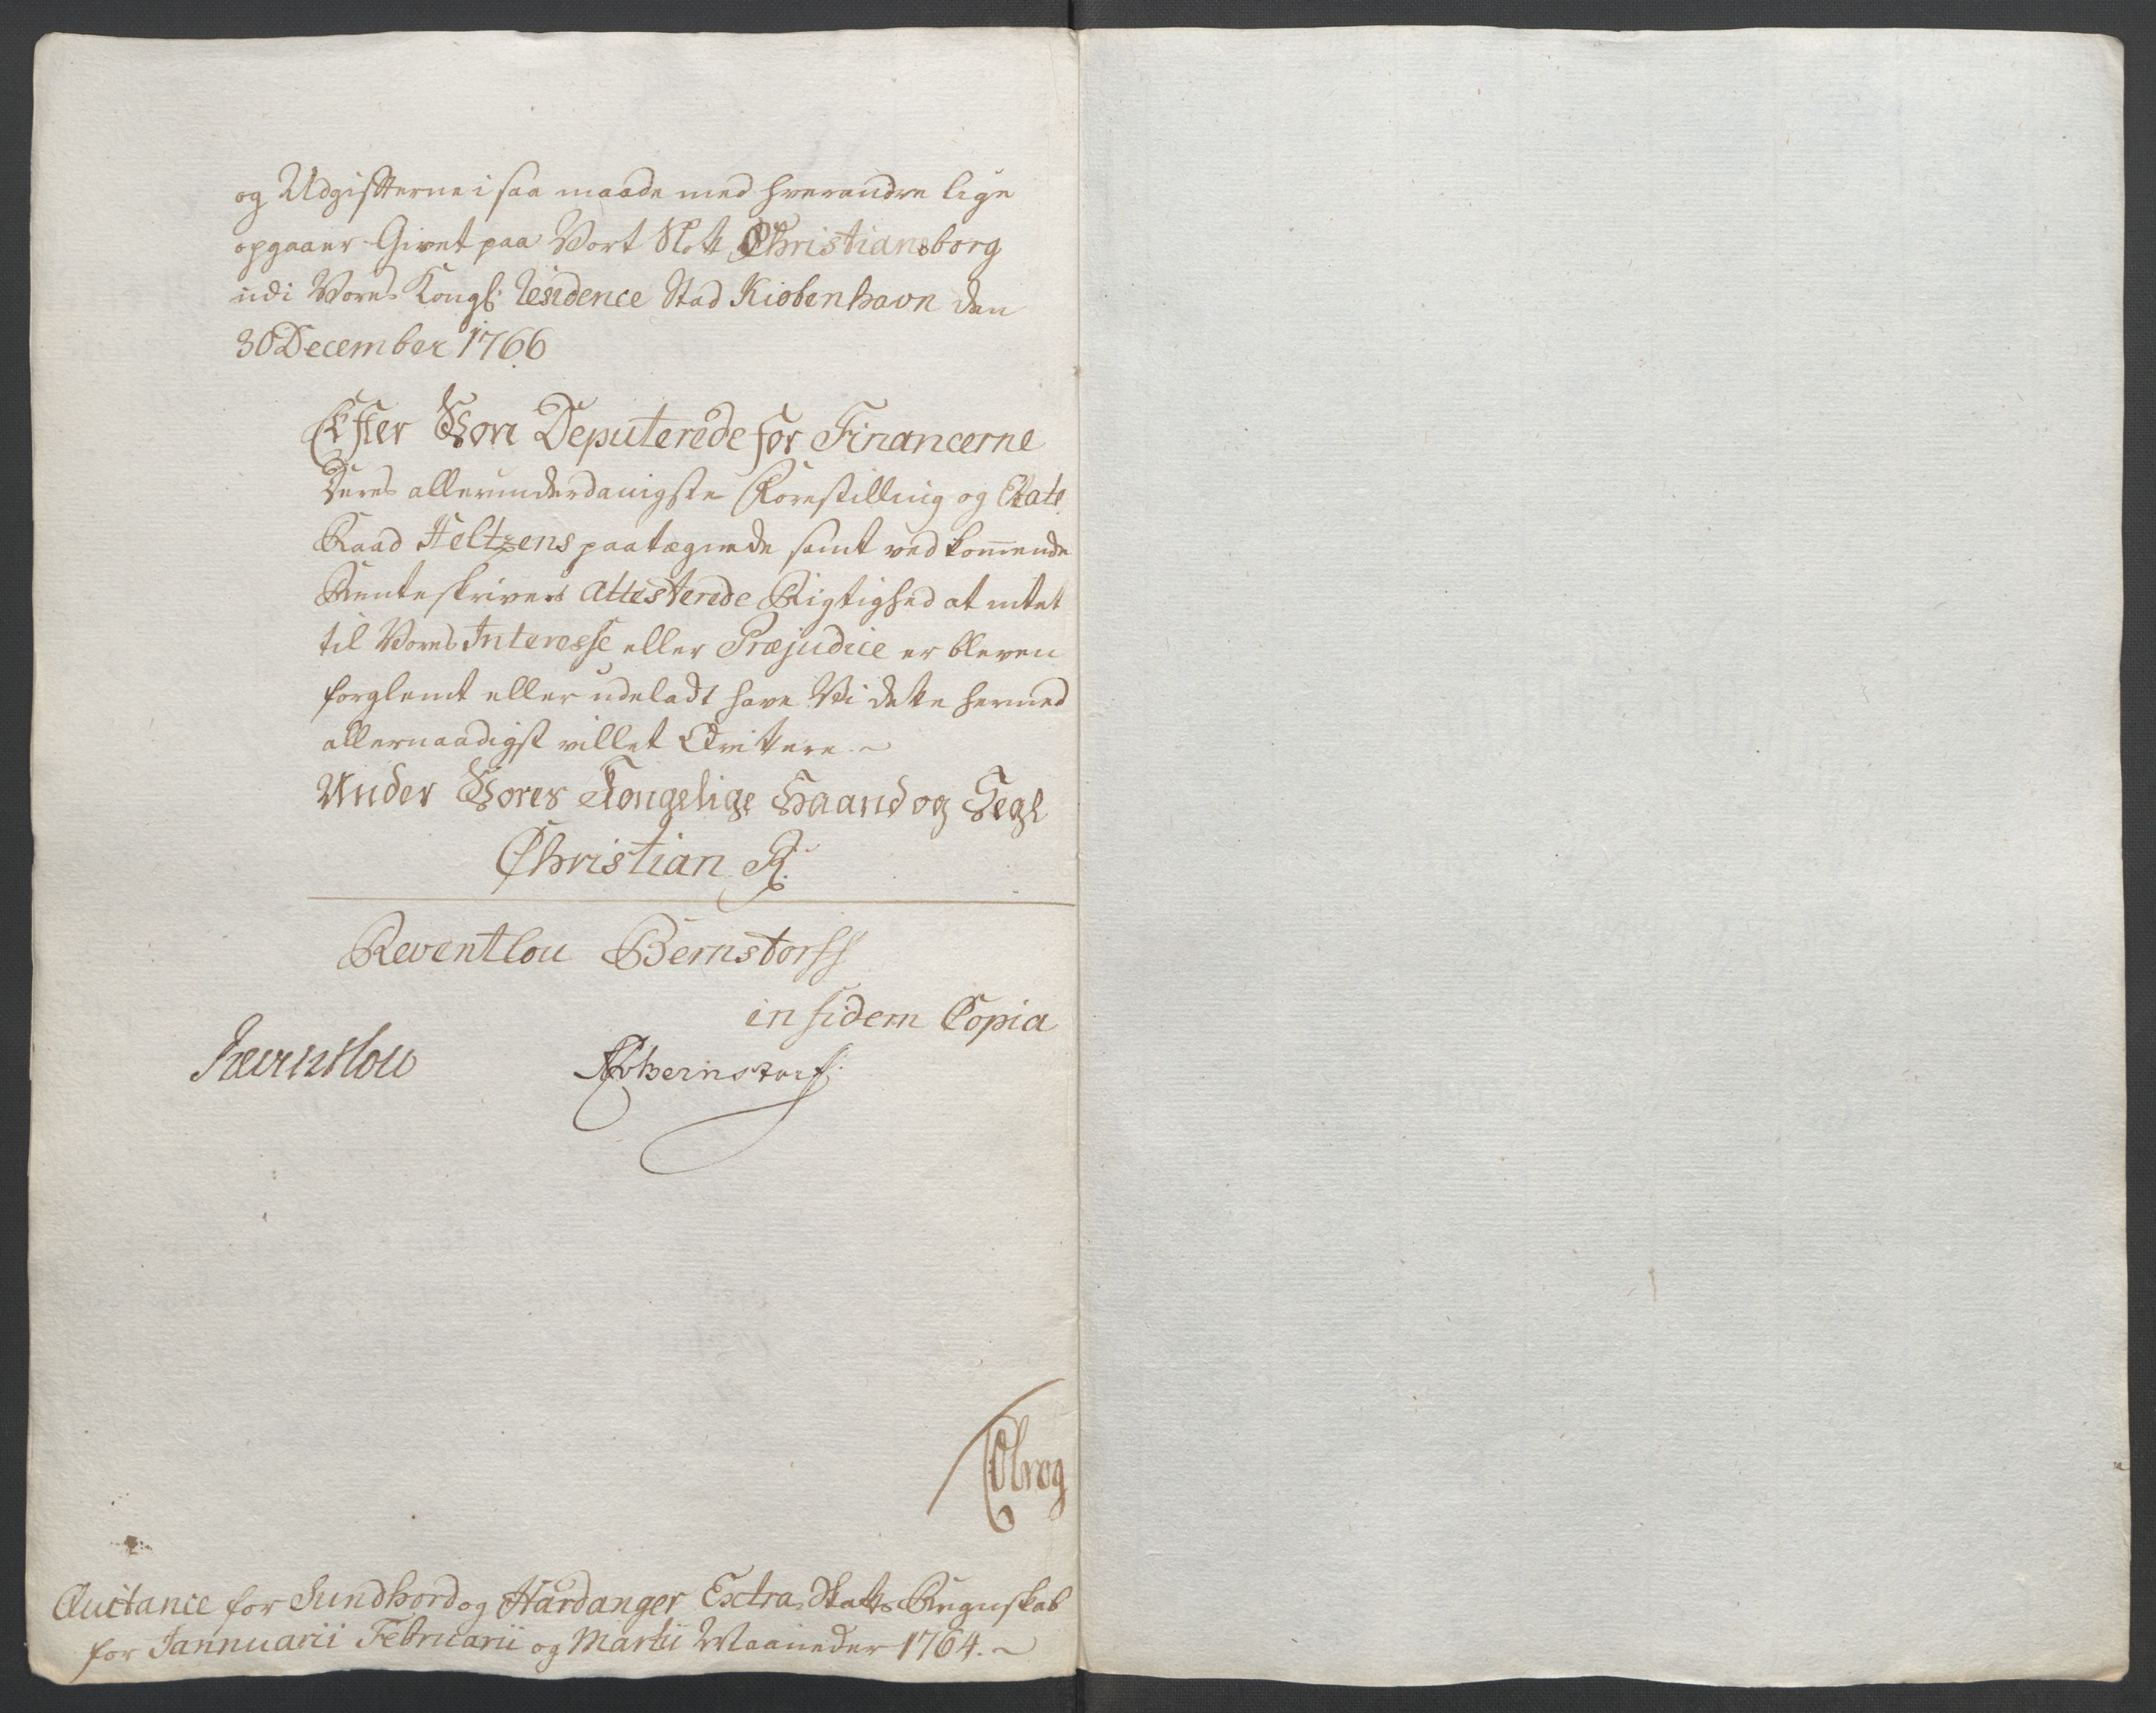 og Udgifterne i saa maade med hverandre lige
opgaaer. Givet paa Vort Slot Christiansborg
udi Vores Kongl: Residence Stad Kiøbenhavn den
30 December 1766
Efter Vore Deputerede for Financerne
Deres allerunderdanigste Forestilling og Etats
Raad Heltzens paategnede samt vedkommende
Renteskrivers attesterede Rigtighed at intet
til Vores Interesse eller Præjudice er bleven
forglemt eller udeladt have Vi dette hermed
allernaadigst villet Qvittere.~
Under Vores Kongelige Haand og Segl
Christian R:
Reventlou Bernstorff
in fidem Copia
Reventlou Bernstorf:
Qvitance for Sundhord og Hardanger Extra Skatts Regnskab
for Jannuarii Februarii og Martii Maaneder 1764.~